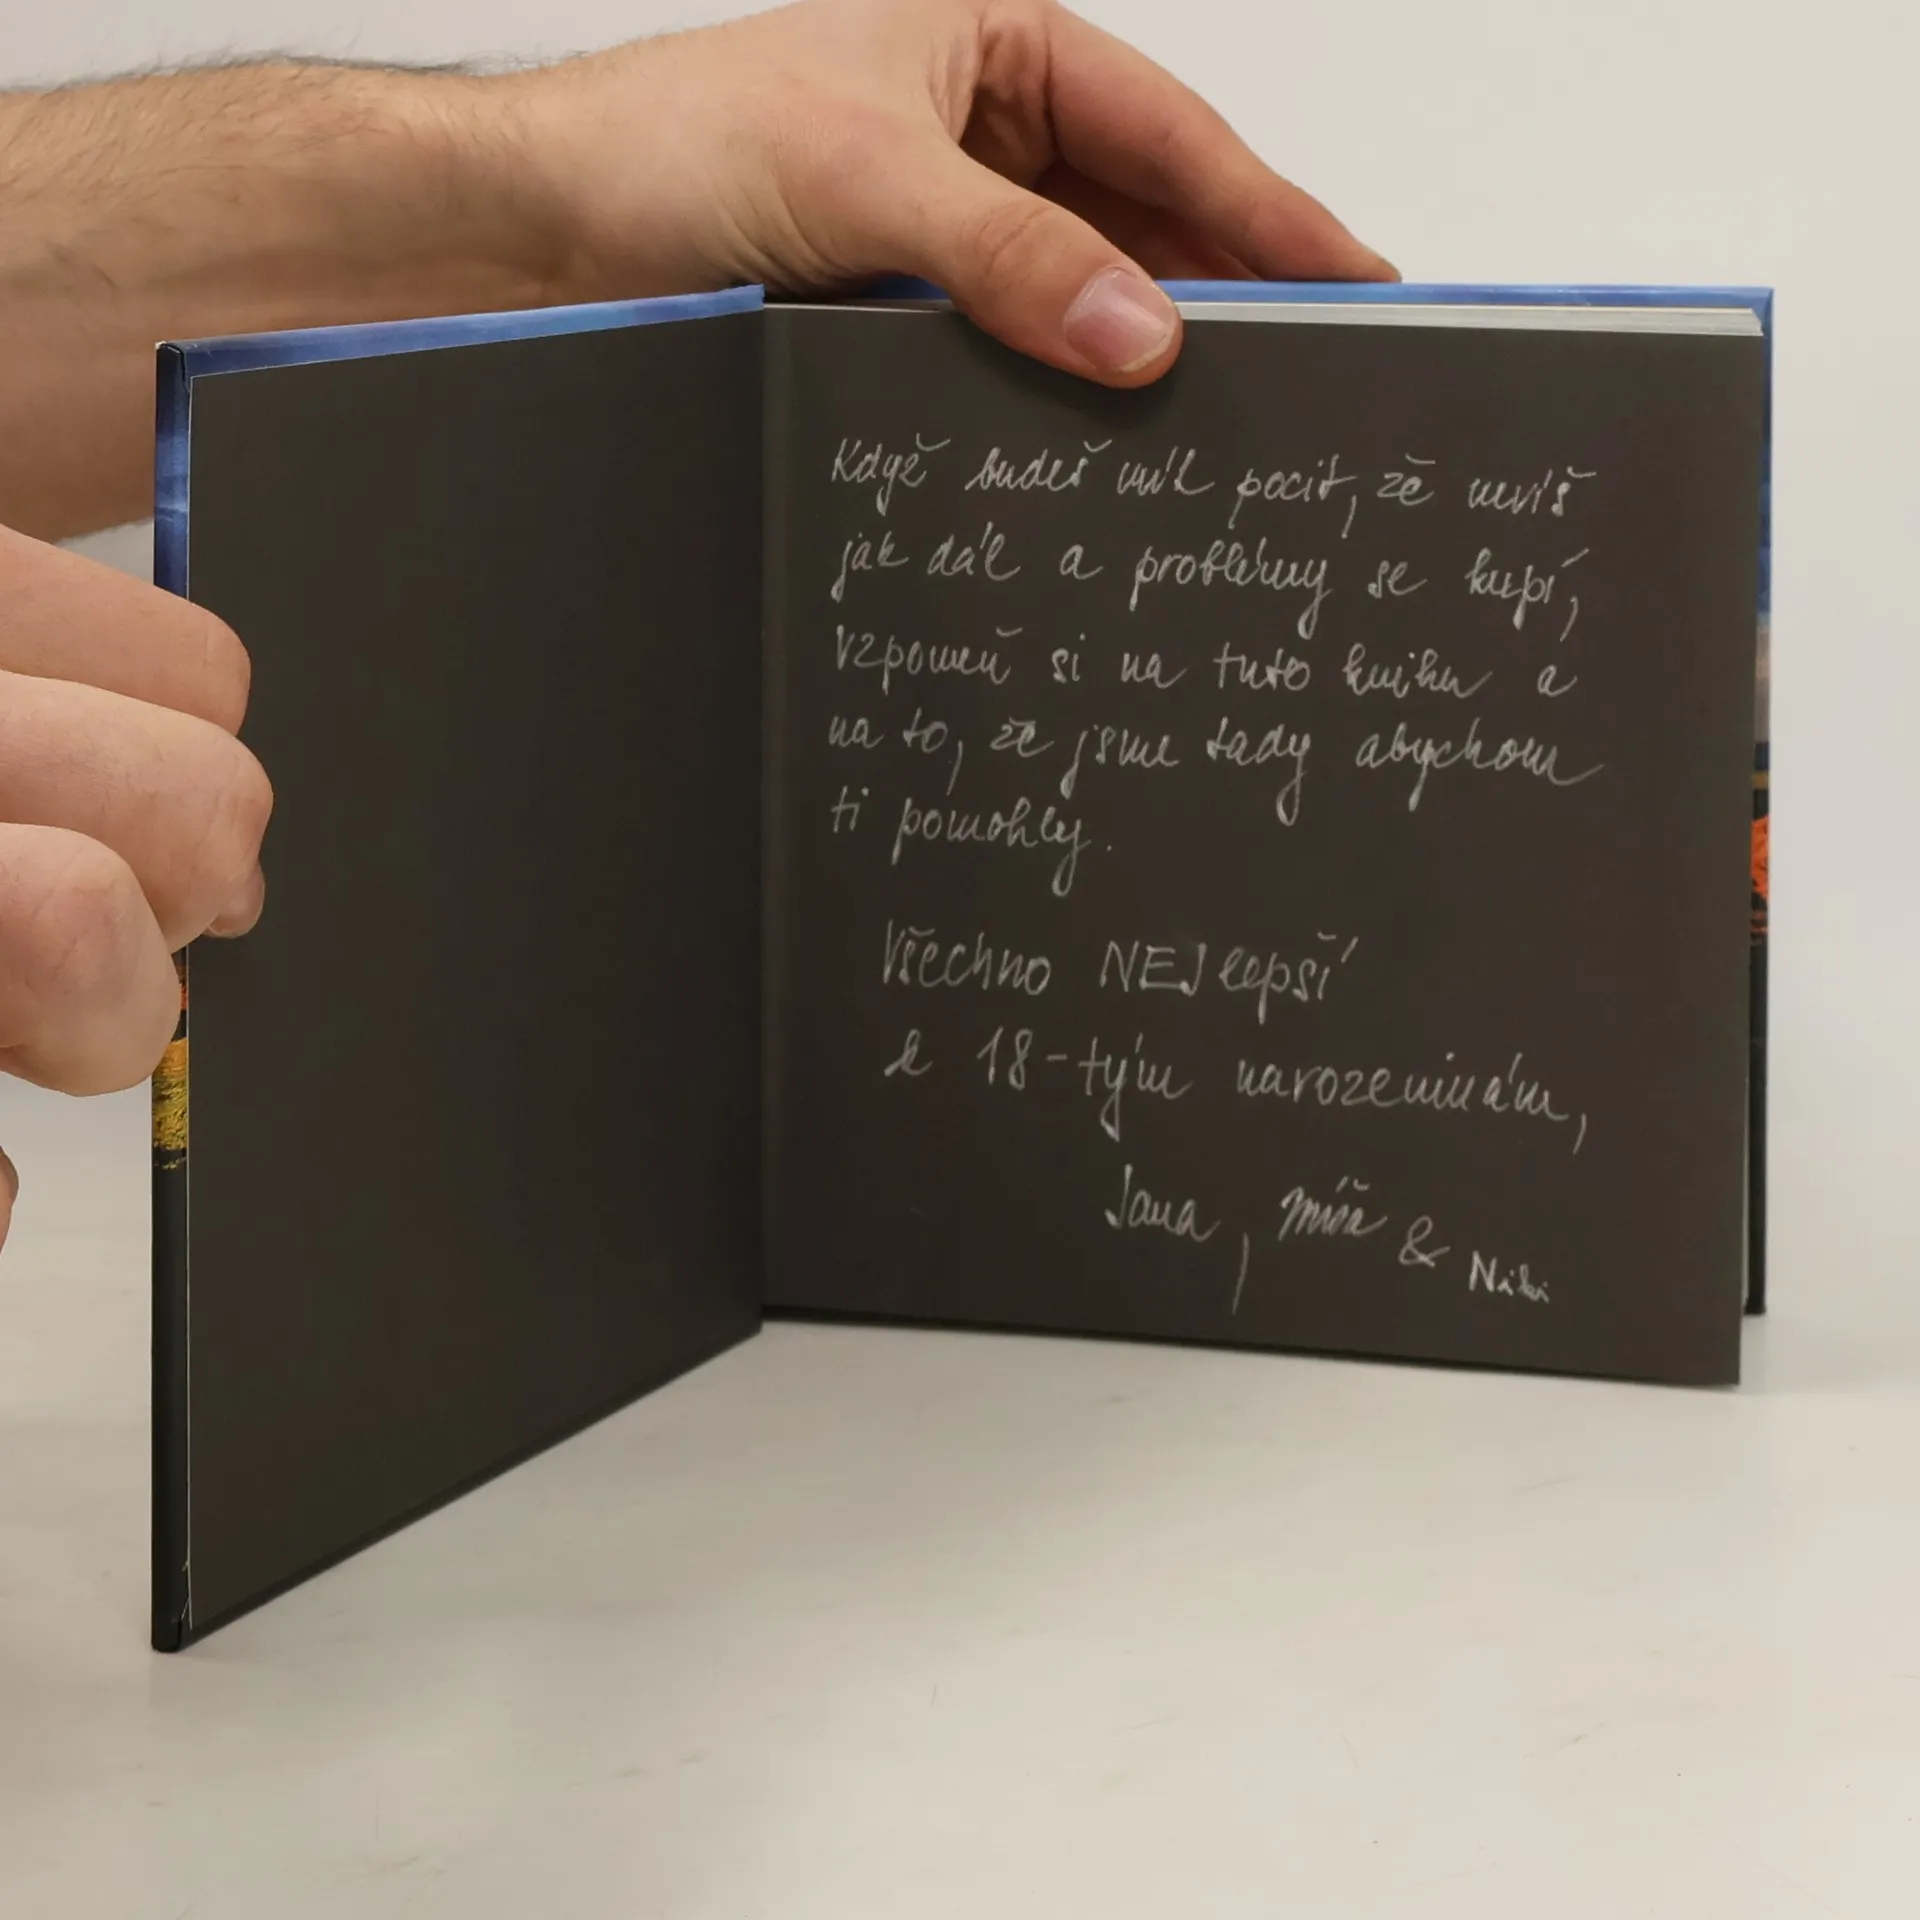 Když budeš mít pocit, že nevíš
jak dál a problémy se kupí,
vzpomeň si na tuto knihu a
na to, že jsme tady abychom
ti pomohly.
Všechno NEJlepší
k 18-tým narozeninám,
Jana, Míša & Niki